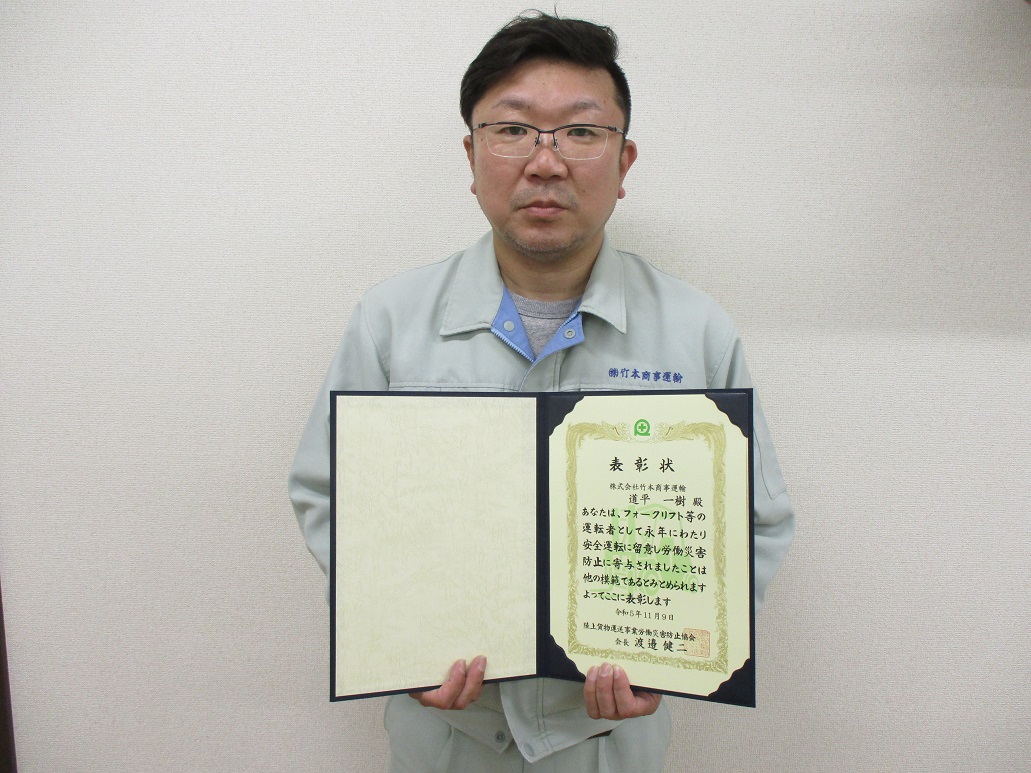 ㈱竹本商事運輸
表彰状
株式会社竹本商事運輸
道平 一樹 殿
あなたは、フォークリフト等の
運転者として永年にわたり
安全運転に留意し労働災害
防止に寄与されましたことは
他の模範であるとみとめられます
よってここに表彰します
令和5年11月9日
陸上貨物運送事業労働災害防止協会
会長 渡邉健二